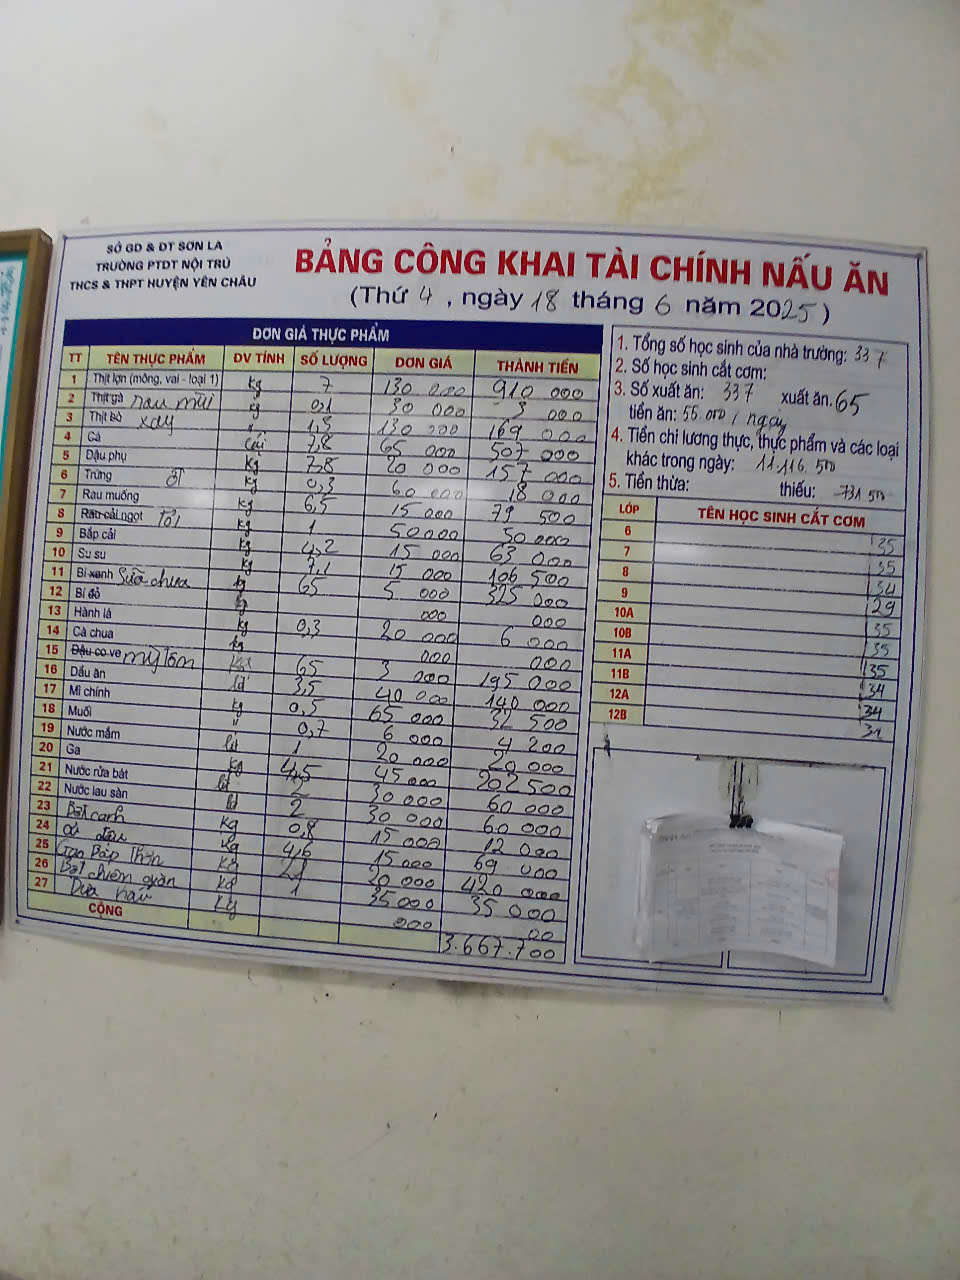 SỞ GD & ĐT SƠN LA
TRƯỜNG PTDT NỘI TRÚ
THCS & THPT HUYỆN YÊN CHÂU
BẢNG CÔNG KHAI TÀI CHÍNH NẤU ĂN
(Thứ 4, ngày 18 tháng 6 năm 2025)
ĐƠN GIÁ THỰC PHẨM
TT TÊN THỰC PHẨM ĐV TÍNH SỐ LƯỢNG ĐƠN GIÁ THÀNH TIỀN
1 Thịt lợn (mông, vai - loại 1) kg 7 130 000 910 000
2 Thịt gà rau mùi kg 0,1 30 000 3 000
3 Thịt bò xay 1,3 130 000 169 000
4 Cá cái 7,8 65 000 507 000
5 Đậu phụ kg 7,8 20 000 157 000
6 Trứng ớt kg 0,3 60 000 18 000
7 Rau muống kg 6,5 15 000 79 500
8 Rau cải ngọt tỏi kg 1 50000 50 000
9 Bắp cải kg 4,2 15 000 63 000
10 Su su kg 7,1 15 000 106 500
11 Bí xanh Sữa chua kg 65 5 000 325 000
12 Bí đỏ kg 000 000
13 Hành lá kg 0,3 20 000 6 000
14 Cà chua kg 000 000
15 Đậu co ve mỳ tôm 65 3 000 195 000
16 Dầu ăn lít 3,5 40 000 140 000
17 Mì chính kg 0,5 65 000 32 500
18 Muối " 0,7 6 000 4 200
19 Nước mắm lít 1 20 000 20 000
20 Ga kg 4,5 45 000 202 500
21 Nước rửa bát lít 2 30 000 60 000
22 Nước lau sàn lít 2 30 000 60 000
23 Bột canh kg 0,8 15 000 12 000
24 kg 4,6 15 000 69 000
25 Gạo Bắp Thơm kg 21 20 000 420 000
26 Bột chiên giòn kg 1 35 000 35 000
27 Dưa hấu kg 000 00
CỘNG 3.667.700
1. Tổng số học sinh của nhà trường: 337
2. Số học sinh cắt cơm:
3. Số xuất ăn: 337 xuất ăn. 65
tiền ăn: 55.000 / ngày
4. Tiền chi lương thực, thực phẩm và các loại
khác trong ngày: 11.116.500
5. Tiền thừa: thiếu: -731 500
LỚP TÊN HỌC SINH CẮT CƠM
6 35
7 35
8 34
9 29
10A 35
10B 35
11A 35
11B 34
12A 34
12B 31